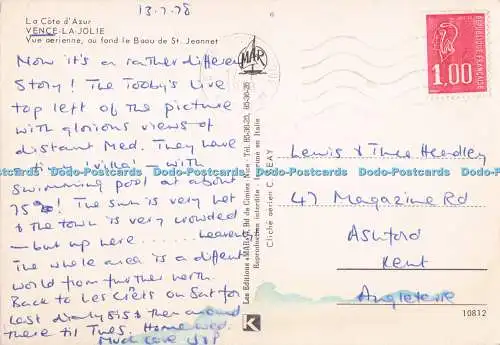 13.7.78
La Côte d'Azur
VENCE-LA-JOLIE
Vue aérienne, au fond le Baou de St. Jeannet
6
Now it's a rather different
Story! The Tooby's live
top left of the picture
with glorious views of
distant Med. They have
a tiny 'villa' – with
swimming pool at about
75°! The sun is very hot
& the town is very crowded
– but up here ...... heaven.
The whole area is a different
world from further north.
Back to Les Crêts on Sat for
last days & then around
there til Tues. Home Wed.
Much love
MAR
Les Editions «MAR» Bd du Cimiez Nice - Tél. 85-36-20, 85-36-26
Reproduction interdite - Imprimé en Italie
Cliché aérien C. REAY
K
REPUBLIQUE FRANÇAISE
1,00
Lewis & Thea Headley
47 Magazine Rd
Ashford
Kent
Angleterre
10812
Dodo-Postcards Dodo-Postcards Dodo-Postcards Dodo-Postcards